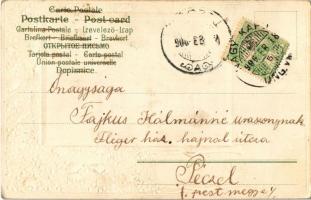 Carte Postale
Postkarte - Post card
Cartolina Postale - Levelező-Lap
Brefkort - Briefkaart - Brevkort
ОТКРЫТОЕ ПИСЬМО
Tarjeta postal - Carta postal
Union postale universelle
Dopisnice
906
Önagysága
Fajkus Kálmánné urasszonynak
Fliger ház. hajnal utcza
Péczel
(pest megye)